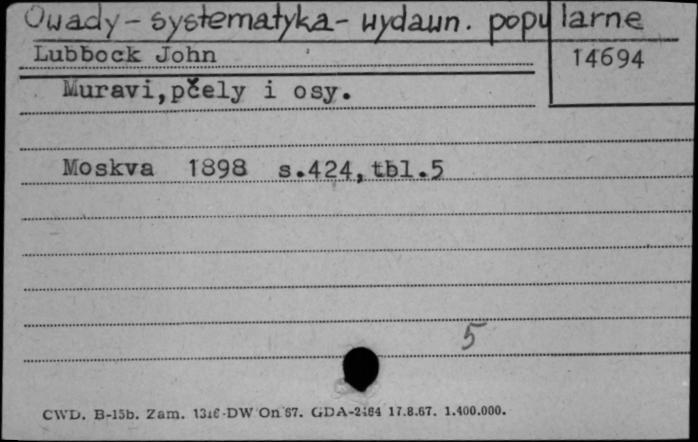 Owady - systematyka - wydawn. popularne
Lubbock John
14694
Muravi,pčely i osy.
Moskva 1898 s.424,tbl.5
5
CWD. B-15b. Zam. DW On 67. GDA- 17.8.67. 1.400.000.